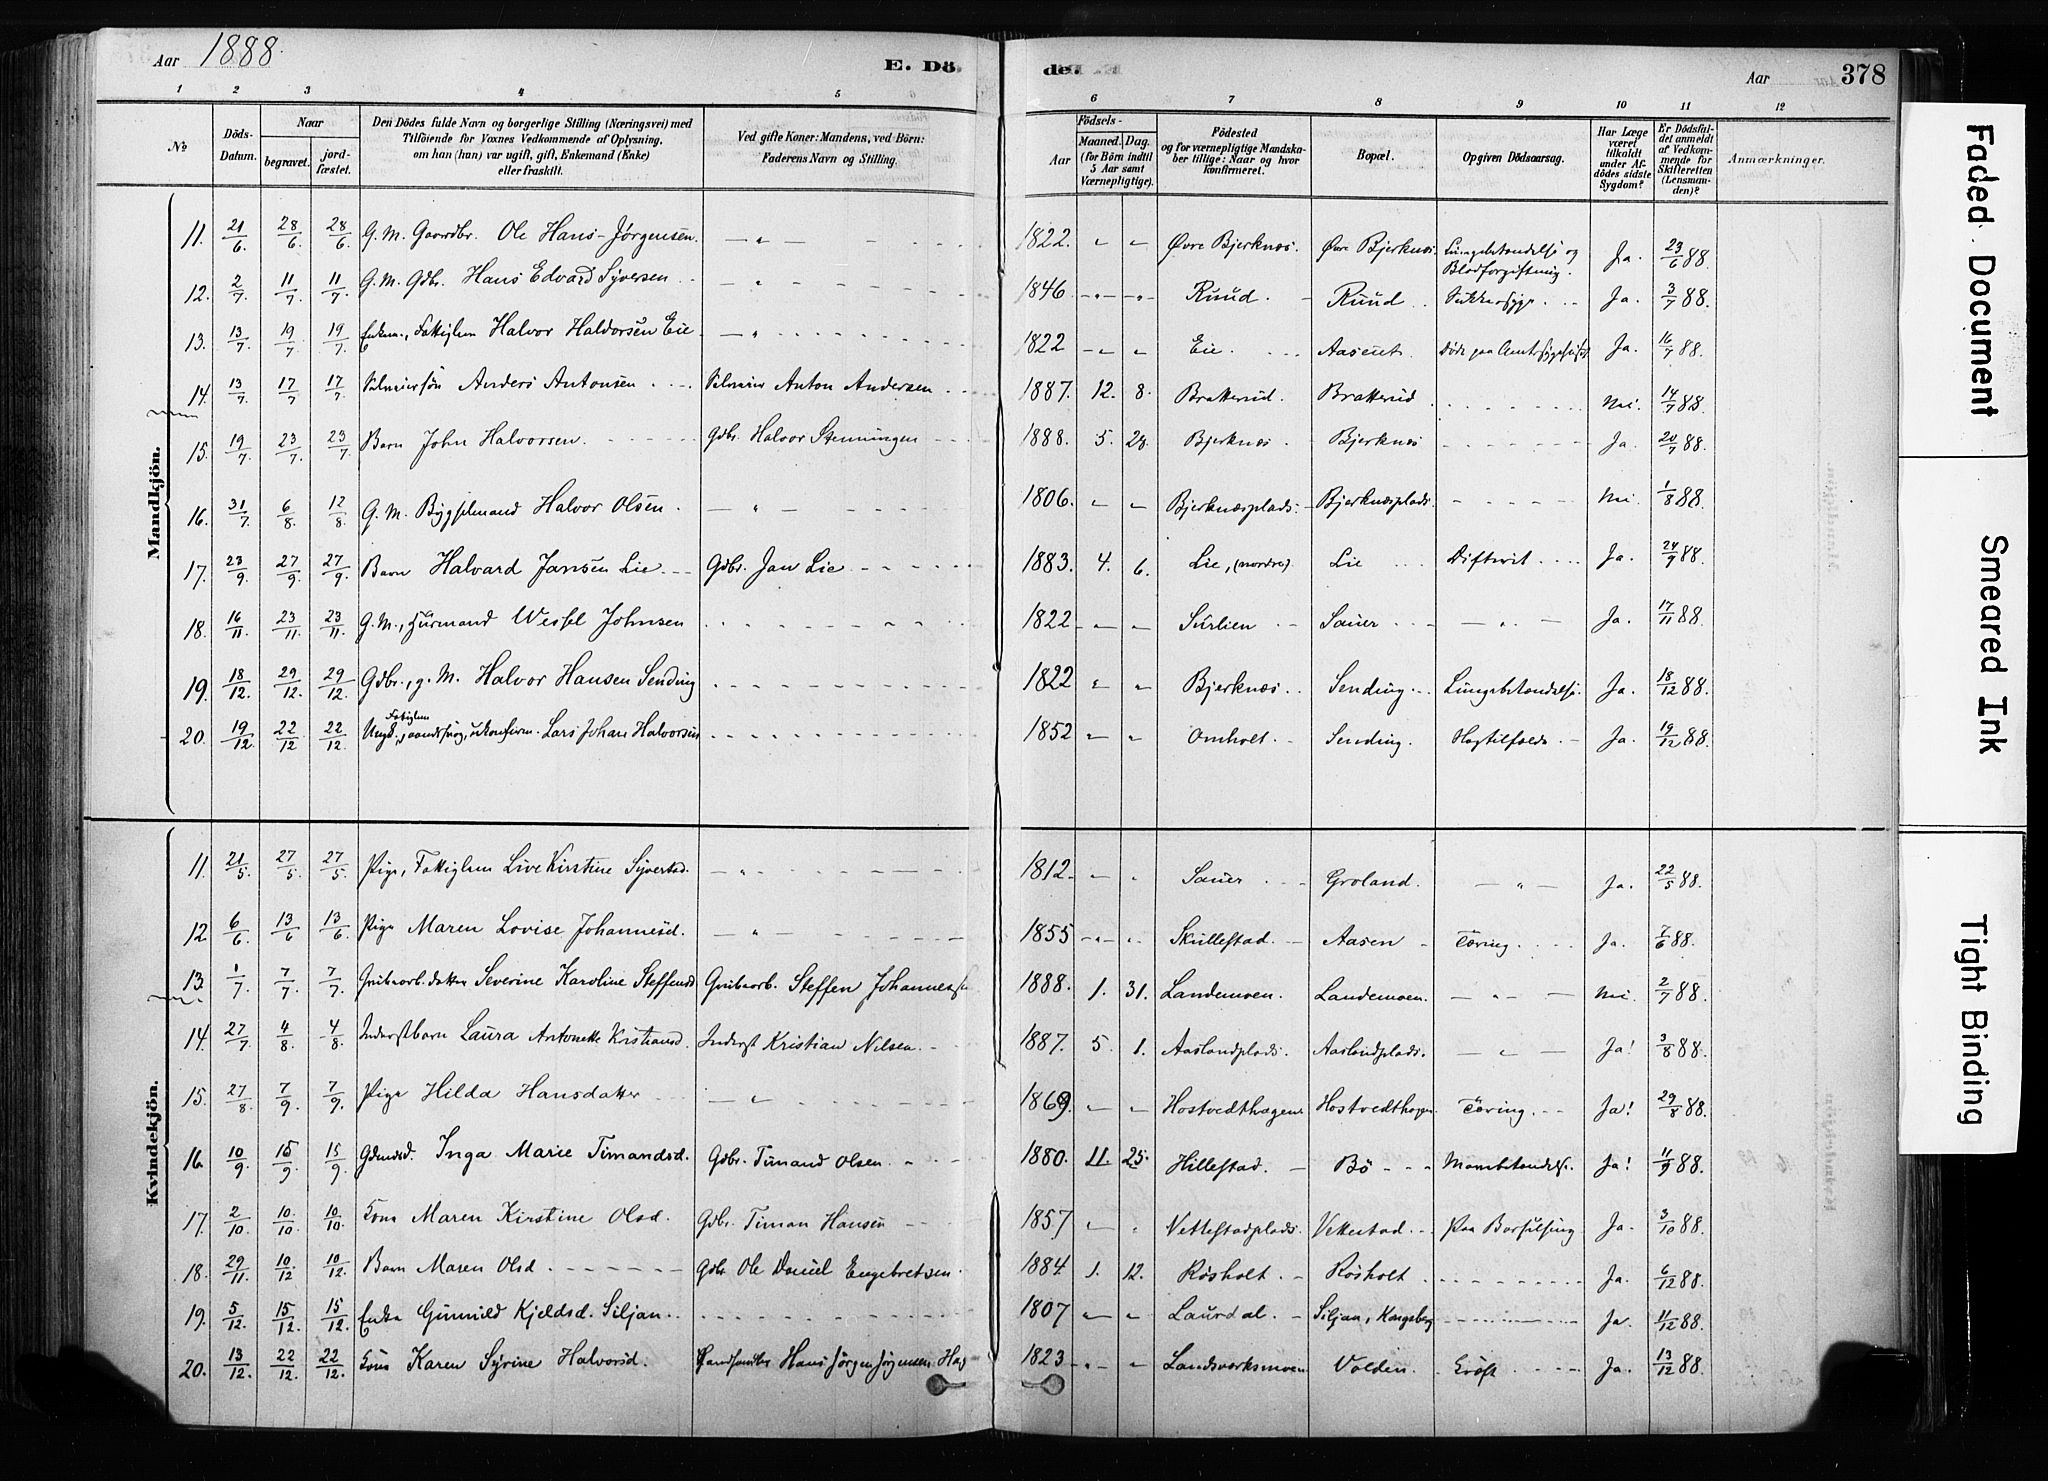 Aar 1888. E. Dö
de. Aar 378
1 2 3 4 5 6 7 8 9 10 11 12
No Döds-Datum. Naar begravet. jordfæstet. Den Dödes fulde Navn og borgerlige Stilling (Næringsvei) med Tilföiende for Voxnes Vedkommende af Oplysning, om han (hun) var ugift, gift, Enkemand (Enke) eller fraskilt. Ved gifte Koner: Mandens, ved Börn: Faderens Navn og Stilling. Födsels- Aar Maaned. Dag. (for Börn indtil 5 Aar samt Værnepligtige). Födested og for værnepligtige Mandskaber tillige: Naar og hvor konfirmeret. Bopæl. Opgiven Dödsaarsag. Har Læge været tilkaldt under Afdödes sidste Sygdom? Er Dödsfaldet anmeldt af Vedkommende for Skifteretten (Lensmanden)? Anmærkninger.
Mandkjön.
11. 21/6 28/6 28/6 G. M. Gaardbr. Ole Hans-Jørgensen. — " — 1822. " " Øvre Bjerknæs. Øvre Bjerknæs. Lungebetændelse og Blodforgiftning. Ja. 23/6 88.
12. 2/7 11/7 11/7 G. M. Gdbr. Hans Edvard Syversen " 1846 " " Ruud. Ruud Sukkersyge. Ja. 3/7 88.
13. 13/7. 19/7 19/7. Enkem., Fattiglem Halvor Haldorsen Eie — " 1822 " " Eie. Aasen Døde paa Amtssygehuset. Ja. 16/7 88.
14. 13/7. 17/7 17/7. Anders Antonsen Anton Andersen 1887. 12. 8. Bratterud. Bratterud Nei. 14/7 88.
15. 19/7. 23/7. 23/7. Barn John Halvorsen. Gdbr. Halvor Stenningen 1888. 5. 28. Bjerknæs Bjerknæs Ja. 20/7 88.
16. 31/7. 6/8. 12/8. G. M. Bygselmand Halvor Olsen. — " — 1806. " " Bjerknæsplads. Bjerknæsplads. Nei. 1/8 88.
17. 23/9. 27/9. 27/9. Barn Halvard Jansen Lie Gdbr. Jan Lie 1883. 4. 6. Lie, (nordre) Lie Difterit. Ja. 24/9 88.
18. 16/11. 23/11. 23/11. G. M., Huusmand Wessel Johnsen 1822 " " Surlien Sauer — " — Ja. 17/11 88.
19. 18/12. 29/12. 29/12. Gdbr., g. M. Halvor Hansen Sending 1822 " " Bjerknæs. Sending Lungebetændelse. Ja. 18/12 88.
20. 19/12. 22/12 22/12. Ungd. Fattiglem, aandssvag, ukonfirm. Lars Johan Halvorsen 1852 " " Omholt. Sending. Ja. 19/12 88.
Kvindekjön.
11. 21/5. 27/5. 27/5. Pige, Fattiglem Live Kirstine Syversd. — " 1812. " " Sauer Groland. — " — Ja. 22/5 88.
12 6/6. 13/6 13/6. Pige Maren Lovise Johannesd. — " — 1855 " " Skullestad. Aasen Tæring. Ja. 7/6 88.
13. 1/7. 7/7. 7/7. Grubearb. datter Severine Karoline Steffensd Grubearb. Steffen Johannessen 1888. 1. 31. Landemoen. Landemoen. — " — Nei. 2/7 88.
14. 27/7. 4/8. 4/8. Inderstbarn Laura Antonette Kristiansd. Inderst Kristian Nilsen 1887. 5. 1. Aaslandplads. Aaslandplads. — " — Ja! 3/8 88.
15. 27/8. 7/9. 7/9. Pige Hilda Hansdatter " 1869. " " Hostvedthagen Hostvedthagen. Tæring. Ja! 29/8 88.
16. 10/9. 15/9. 15/9. Gdmdsd. Inga Marie Timandsd. Gdbr. Timand Olsen. 1880. 11. 25. Hillestad. Bö Ja! 11/9 88.
17. 2/10. 10/10. 10/10. Kone Maren Kirstine Olsd. Gdbr. Timan Hansen 1857 " " Vettestadplads. Vettestad Paa Barselseng Ja. 3/10 88.
18. 29/11. 10/12 10/12. Barn Maren Olsd Gdbr Ole Daniel Engebretsen. 1884 1. 12. Røsholt. Røsholt. Ja. 6/12 88.
19. 5/12. 15/12. 15/12. Enke Gunnild Kjeldsd. Siljan. 1807 " " Laurdal. Siljan, Kongsberg Ja. 11/12 88.
20. 13/12. 22/12. 22/12. Kone Karen Syrine Halvorsd. Landhandler Hans Jörgen Jörgensen Hag 1823 " " Landsværksmoen Volden. Kræft Ja. 13/12 88.
Faded Document
Smeared Ink
Tight Binding